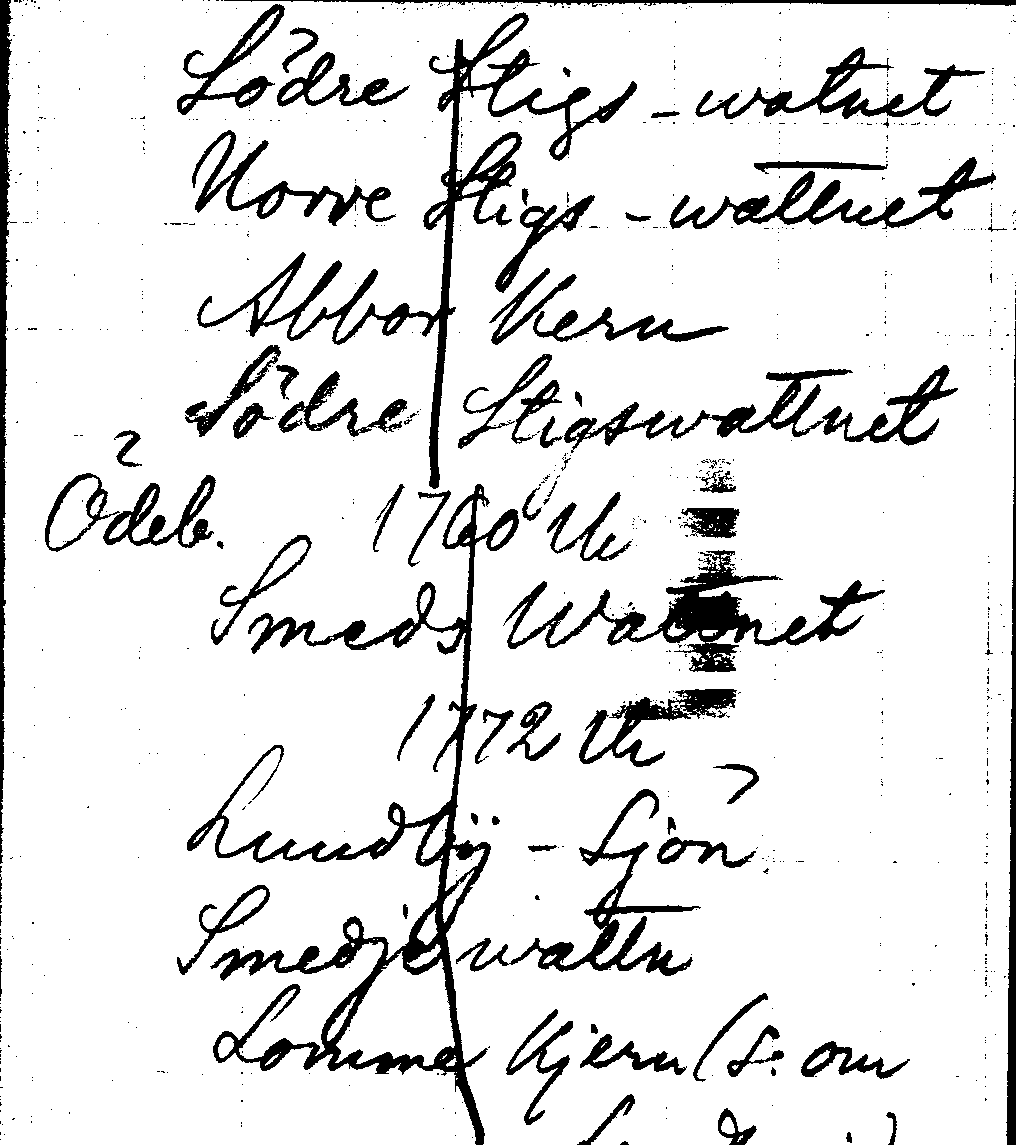 Södre Stigs - watnet
Norre Stigs - wattnet
Abbor Kern
Södre Stigswattnet
Ödeb. 1760 Uk
Smeds Wattnet
1772 Uk
Lundby - Sjön
Smedje wattn
Lomme Kjern (S. om